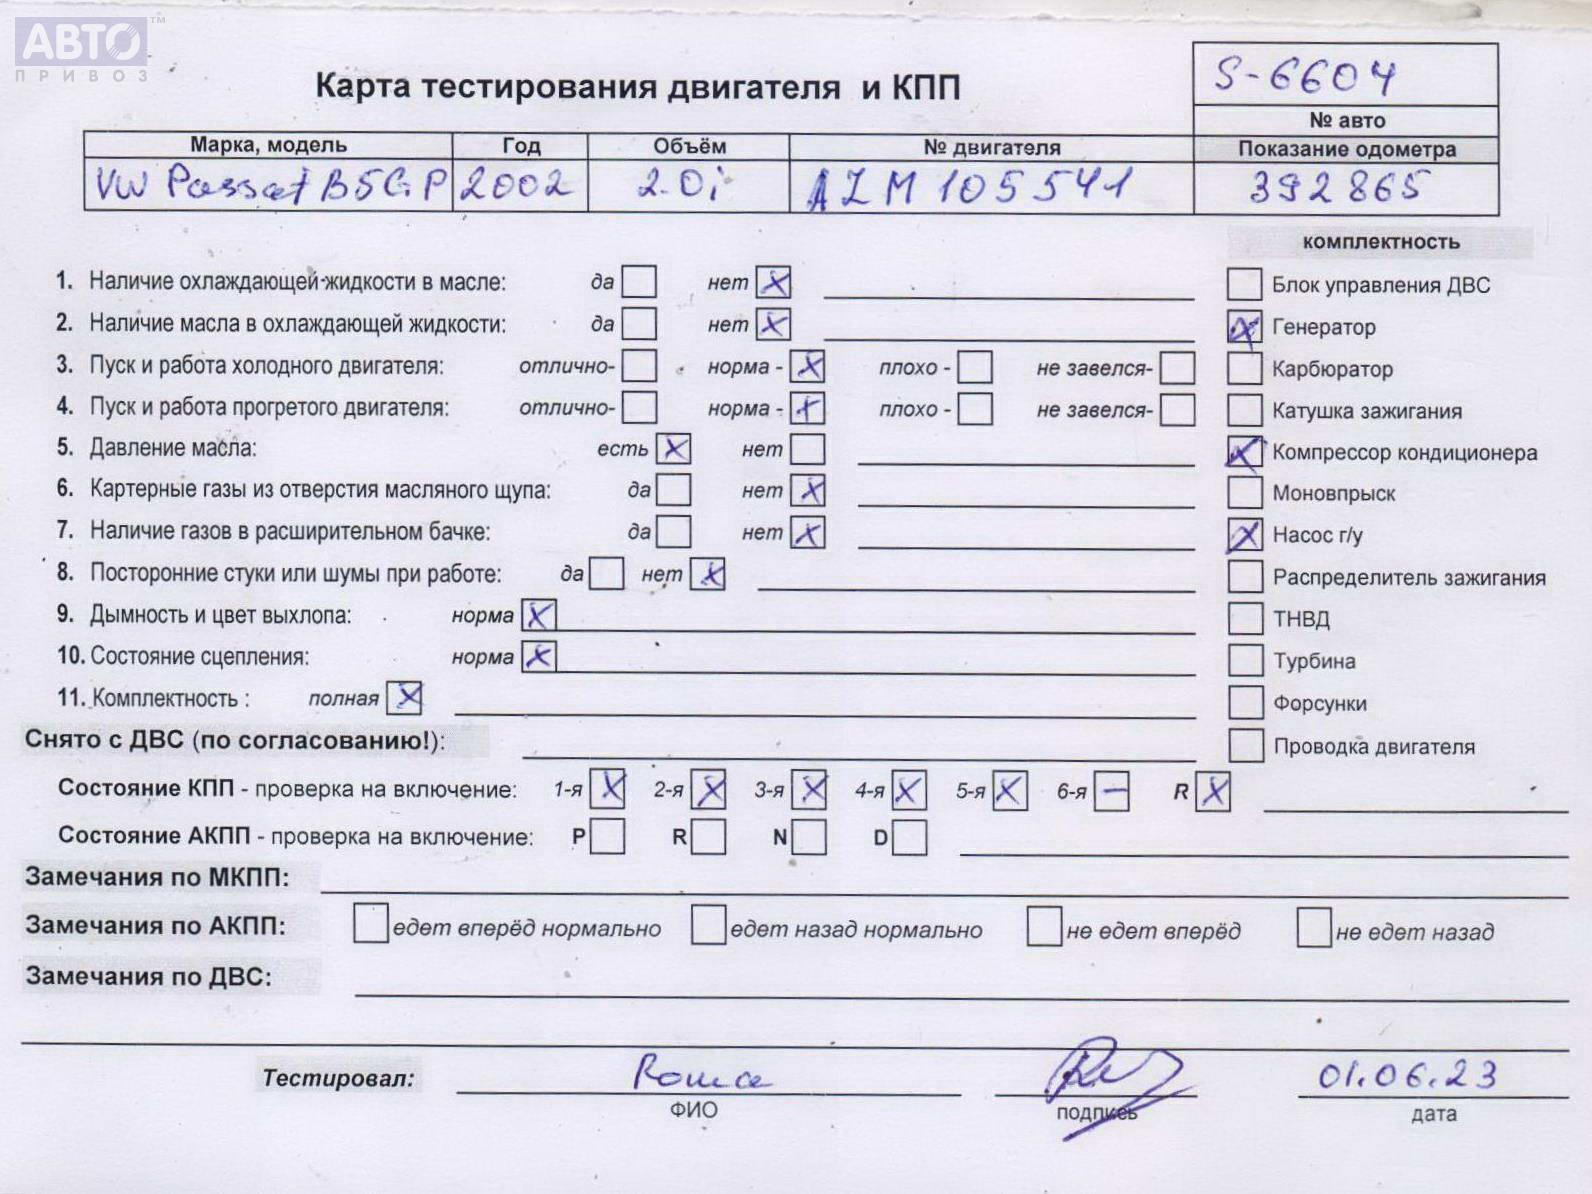 АВТО™
ПРИВОЗ
Карта тестирования двигателя и КПП
S-6604
№ авто
Марка, модель Год Объём № двигателя Показание одометра
VW Passat B5GP 2002 2.0i AZM 105541 392865
комплектность
1. Наличие охлаждающей жидкости в масле: да нет x
Блок управления ДВС
2. Наличие масла в охлаждающей жидкости: да нет x
x Генератор
3. Пуск и работа холодного двигателя: отлично- норма - x плохо - не завелся-
Карбюратор
4. Пуск и работа прогретого двигателя: отлично- норма - x плохо - не завелся-
Катушка зажигания
5. Давление масла: есть x нет
x Компрессор кондиционера
6. Картерные газы из отверстия масляного щупа: да нет x
Моновпрыск
7. Наличие газов в расширительном бачке: да нет x
x Насос г/у
8. Посторонние стуки или шумы при работе: да нет x
Распределитель зажигания
9. Дымность и цвет выхлопа: норма x
ТНВД
10. Состояние сцепления: норма x
Турбина
11. Комплектность : полная x
Форсунки
Снято с ДВС (по согласованию!):
Проводка двигателя
Состояние КПП - проверка на включение: 1-я x 2-я x 3-я x 4-я x 5-я x 6-я – R x
Состояние АКПП - проверка на включение: P R N D
Замечания по МКПП:
Замечания по АКПП: едет вперёд нормально едет назад нормально не едет вперёд не едет назад
Замечания по ДВС:
Тестировал: Рома 01.06.23
ФИО подпись дата